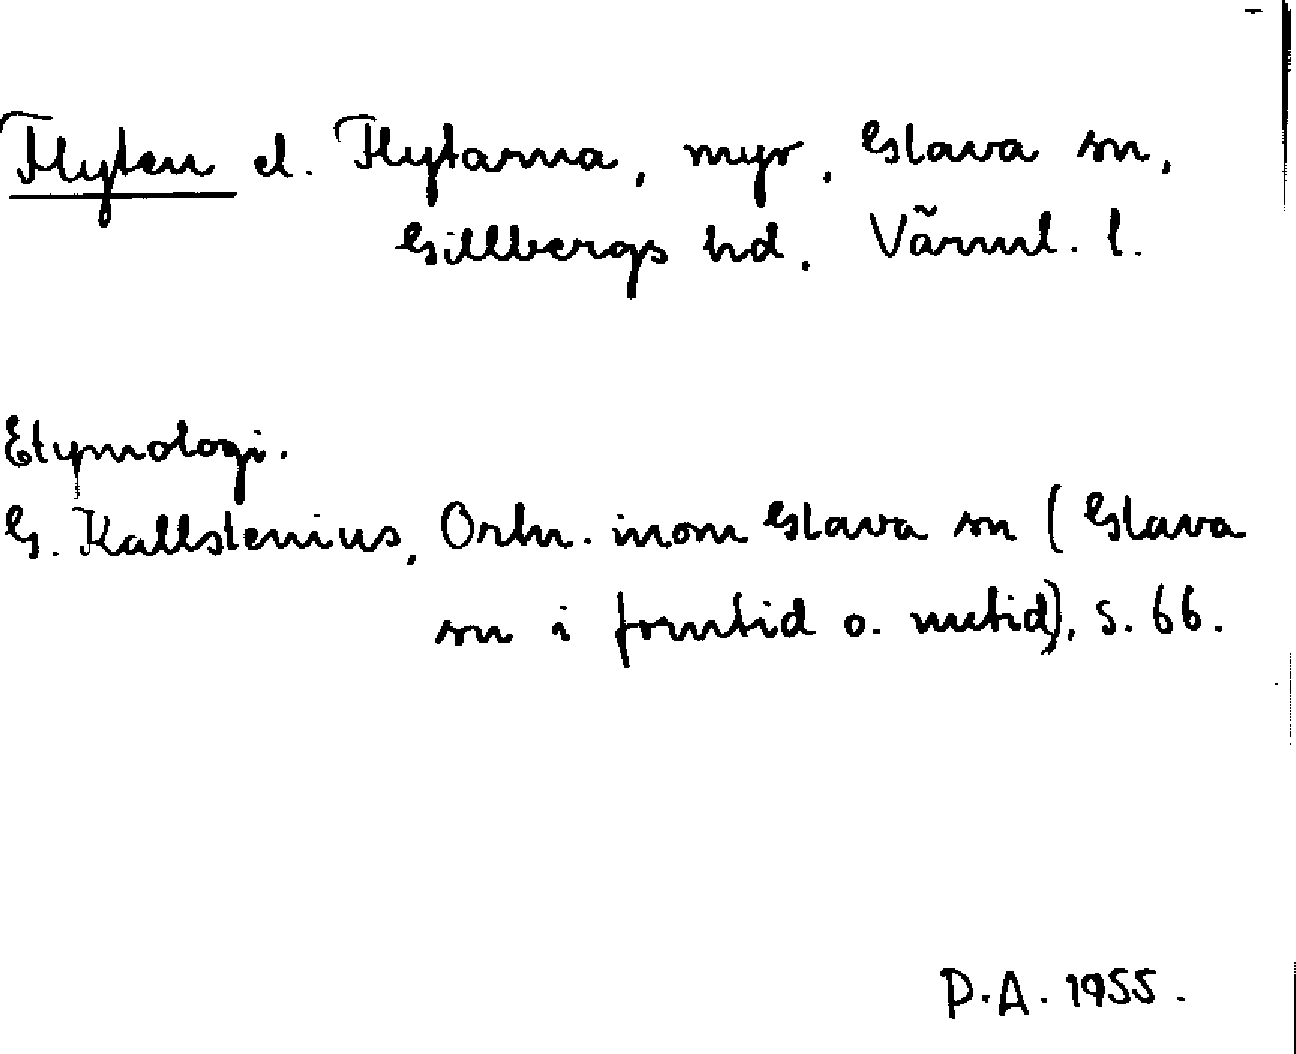 Flyten el. Flytarna, myr, Glava sn,
Gillbergs hd, Värml. l.
Etymologi.
G. Kallstenius, Ortn. inom Glava sn (Glava
sn i forntid o. nutid), s. 66.
P.A. 1955.